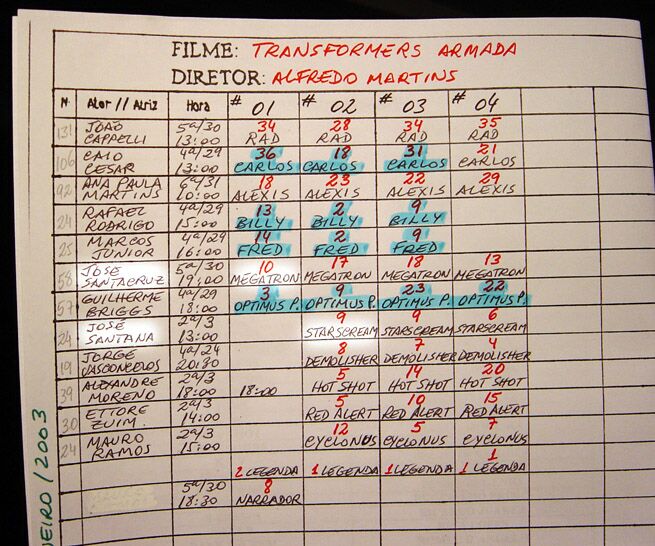 FILME: TRANSFORMERS ARMADA
DIRETOR: ALFREDO MARTINS
N. Ator // Atriz Hora # 01 # 02 # 03 # 04
131 JOÃO CAPPELLI 5ª/30 13:00 34 RAD 28 RAD 34 RAD 35 RAD
106 CAIO CESAR 4ª/29 13:00 36 CARLOS 18 CARLOS 31 CARLOS 21 CARLOS
92 ANA PAULA MARTINS 6ª/31 10:00 18 ALEXIS 23 ALEXIS 22 ALEXIS 29 ALEXIS
24 RAFAEL RODRIGO 4ª/29 15:00 13 BILLY 2 BILLY 9 BILLY
25 MARCOS JUNIOR 4ª/29 16:00 14 FRED 2 FRED 9 FRED
58 JOSÉ SANTACRUZ 5ª/30 19:00 10 MEGATRON 17 MEGATRON 18 MEGATRON 13 MEGATRON
57 GUILHERME BRIGGS 4ª/29 18:00 3 OPTIMUS P. 9 OPTIMUS P. 23 OPTIMUS P. 22 OPTIMUS P.
24 JOSÉ SANTANA 2ª/3 13:00 9 STARSCREAM 9 STARSCREAM 6 STARSCREAM
19 JORGE VASCONCELOS 4ª/24 20:30 8 DEMOLISHER 7 DEMOLISHER 4 DEMOLISHER
39 ALEXANDRE MORENO 2ª/3 18:00 18:00 5 HOT SHOT 14 HOT SHOT 20 HOT SHOT
30 ETTORE ZUIM. 2ª/3 14:00 5 RED ALERT 10 RED ALERT 15 RED ALERT
24 MAURO RAMOS 2ª/3 15:00 12 CYCLONUS 5 CYCLONUS 7 CYCLONUS
2 LEGENDA 1 LEGENDA 1 LEGENDA 1 1 LEGENDA
5ª/30 18:30 8 NARRADOR
EIRO/2003